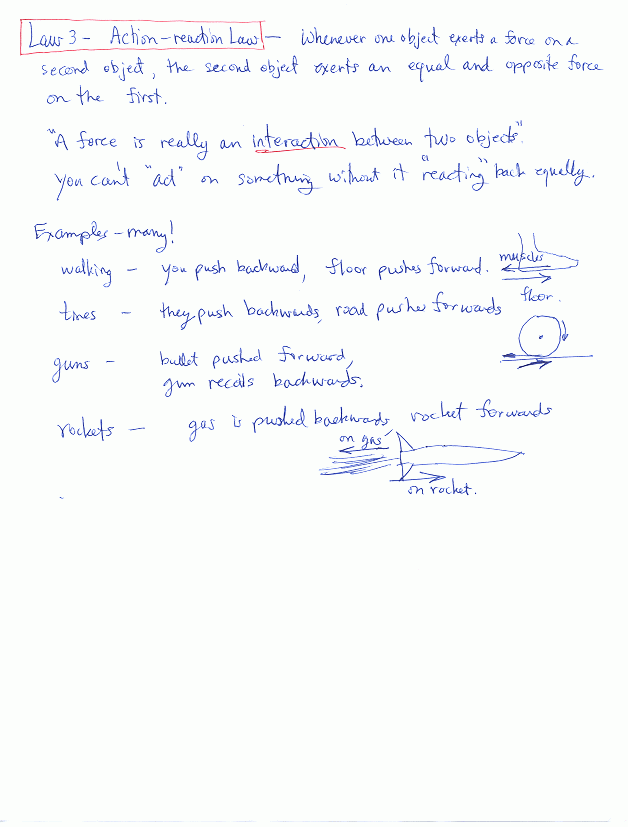 Law 3 - Action-reaction Law - Whenever one object exerts a force on a
second object, the second object exerts an equal and opposite force
on the first.
"A force is really an interaction between two objects".
You can't "act" on something without it "reacting" back equally.
Examples - many!
walking - you push backward, floor pushes forward.
muscles
floor.
tires - they push backwards, road pushes forwards
guns - bullet pushed forward,
gun recoils backwards.
rockets - gas is pushed backwards, rocket forwards
on gas
on rocket.